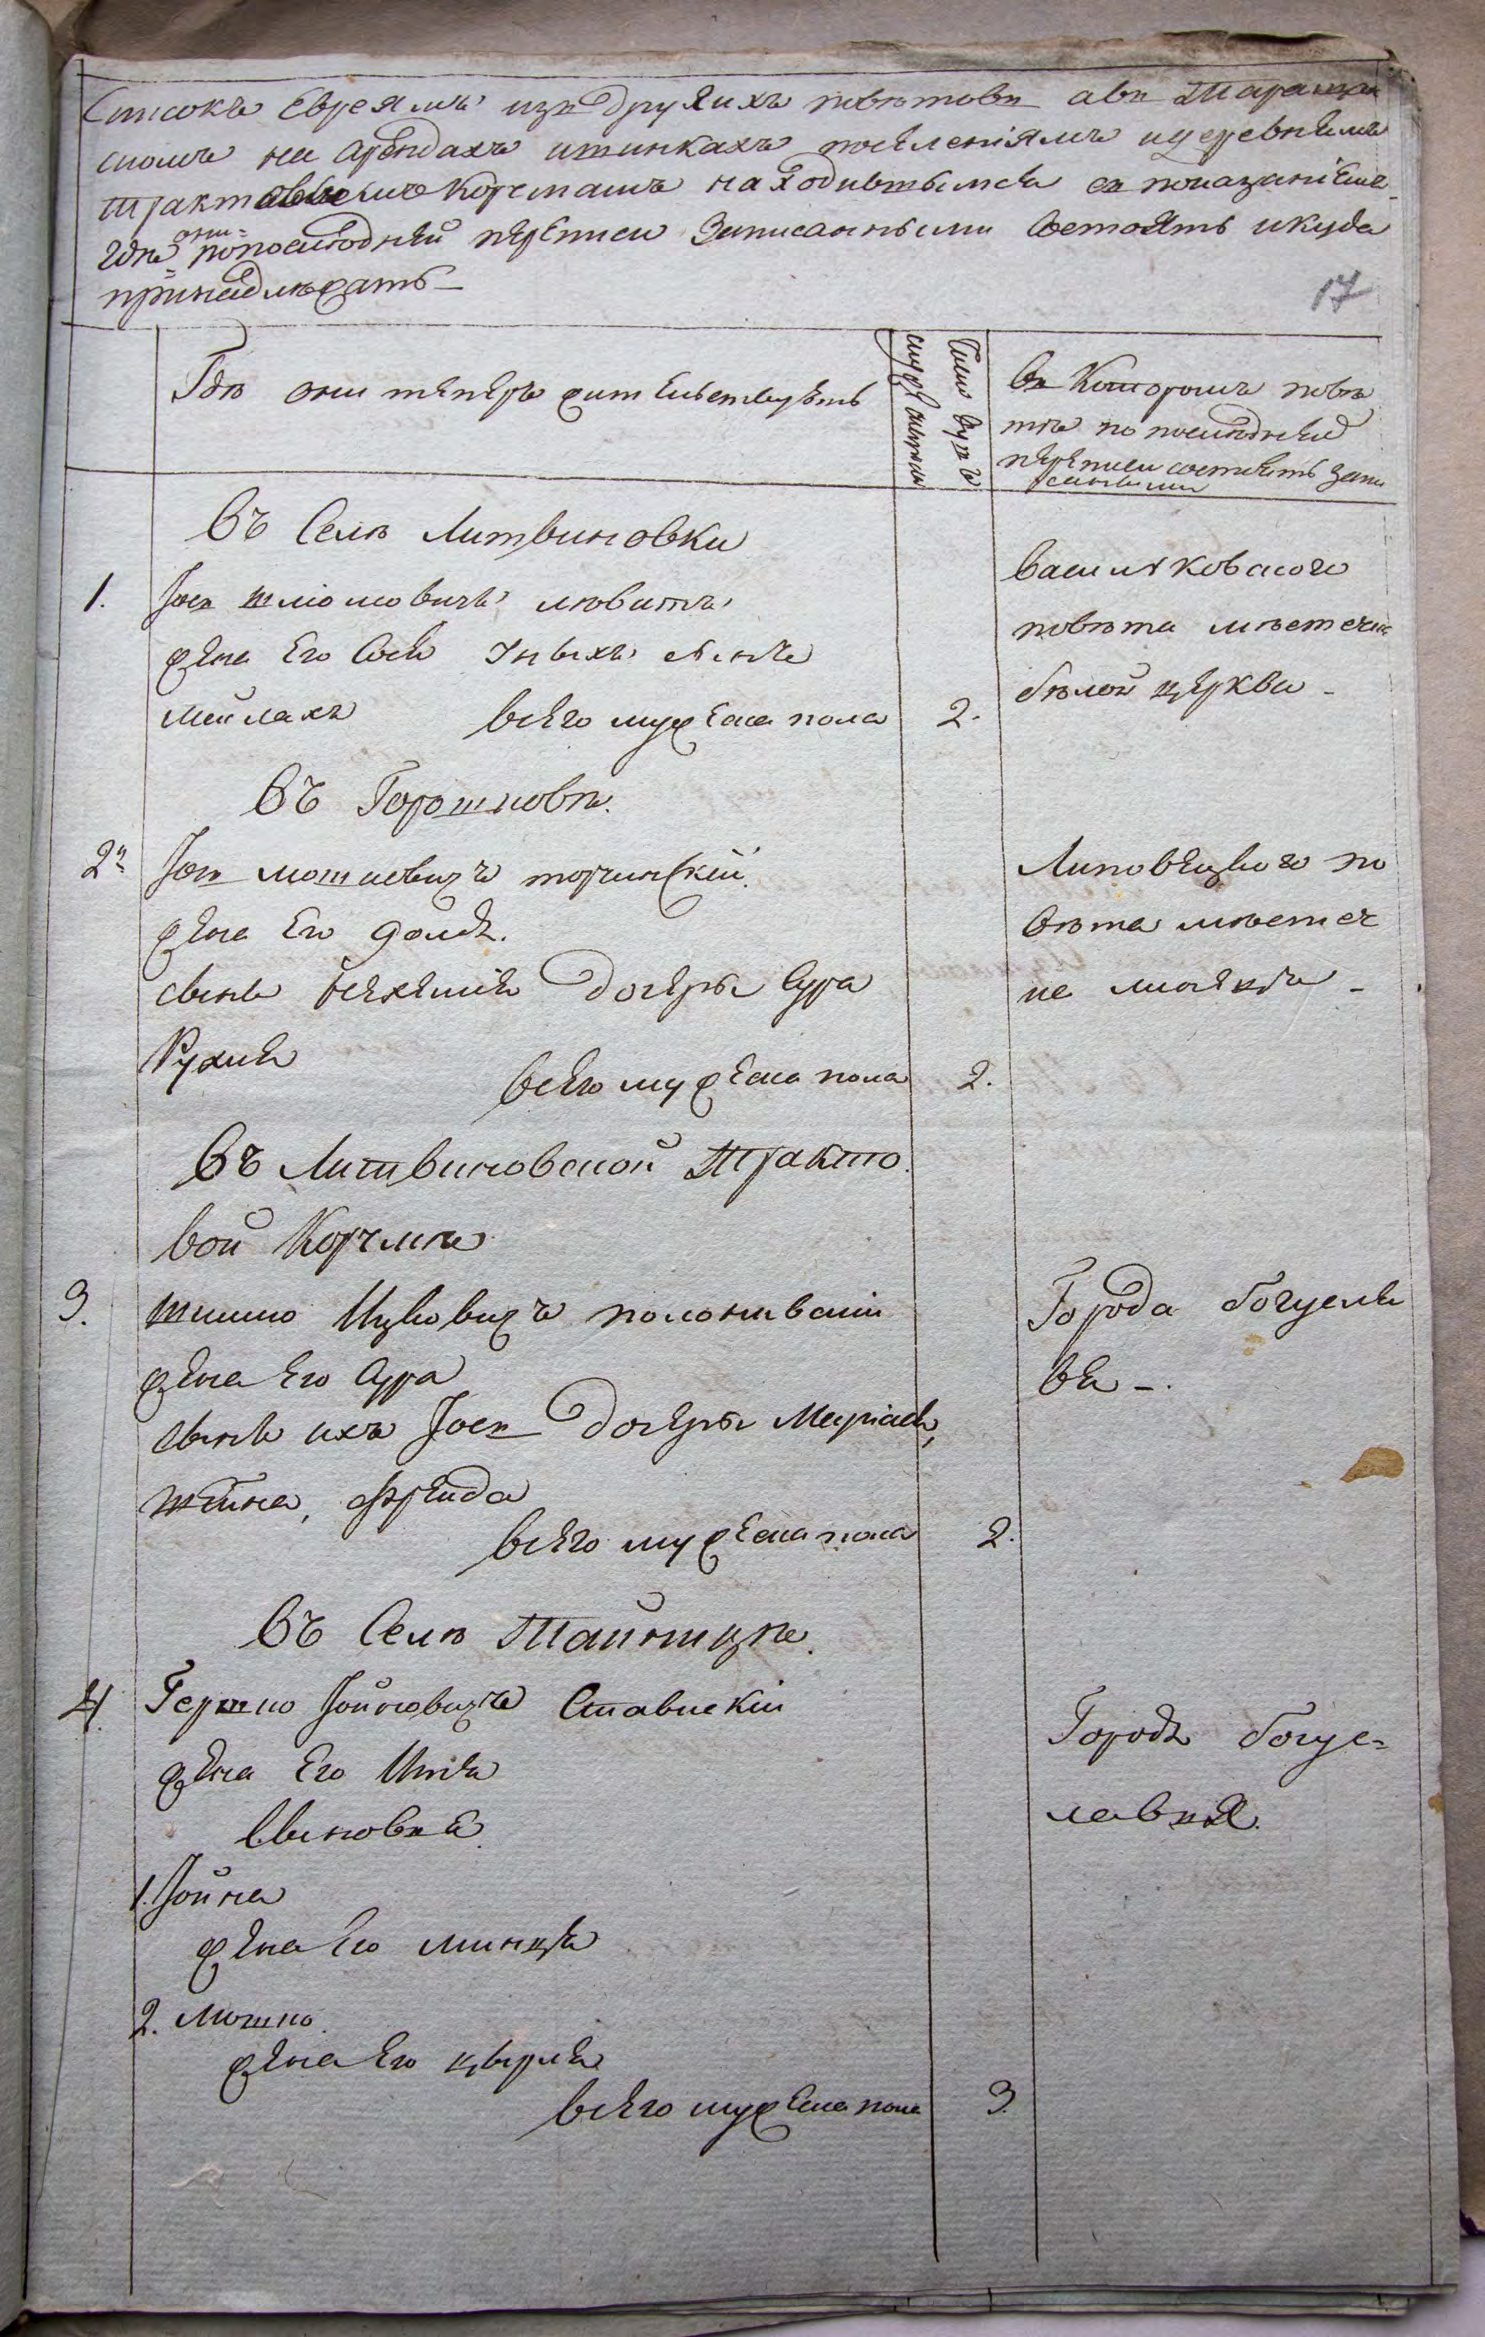 Списокъ Евреямъ изъ другихъ повѣтовъ авъ Таращан
скомъ на Арендахъ ишинкахъ поселеніямъ идеревнямъ
трактовымъ Корчмамъ находившымся съ показаніемъ
они
гдѣ попоследнѣй переписи Записанными Состоятъ икуда
принадлежатъ
17
Гдѣ они теперъ жителствуютъ
Число душъ
мужескихъ
въ Которомъ повѣ
тѣ по последней
переписи состоятъ запи
санными
Въ Селѣ Литвиновки
1. Іосъ шліомовичъ
жена Его Сося Уныхъ сынъ
Мейлахъ всего мужеска пола 2.
Василковского
повѣта мѣстечка
бѣлой церкви
Въ Горошковѣ.
2й Іосъ мошковичъ торчинскій.
жена Его
сынъ Нехемія дочеры Сура
Рухля
всего мужеска пола 2.
Липовецкого по
вѣта мѣстеч
ка
Въ Литвиновской Тракто
вой Корчмѣ
3. Шимо Ицковичъ
жена Его Сура
сынъ ихъ Іосъ дочеры Маріася,
шейна, Фрейда
всего мужеска пола 2.
Города богусла
ва
Въ Селѣ Тайницѣ.
4. Гершко Іойновичъ Ставискій
жена Его Итя
Сыновья
1. Іойна
жена Его минця
2. Мошко.
жена Его цырля
всего мужеска пола 3
Города богус=
лавля.